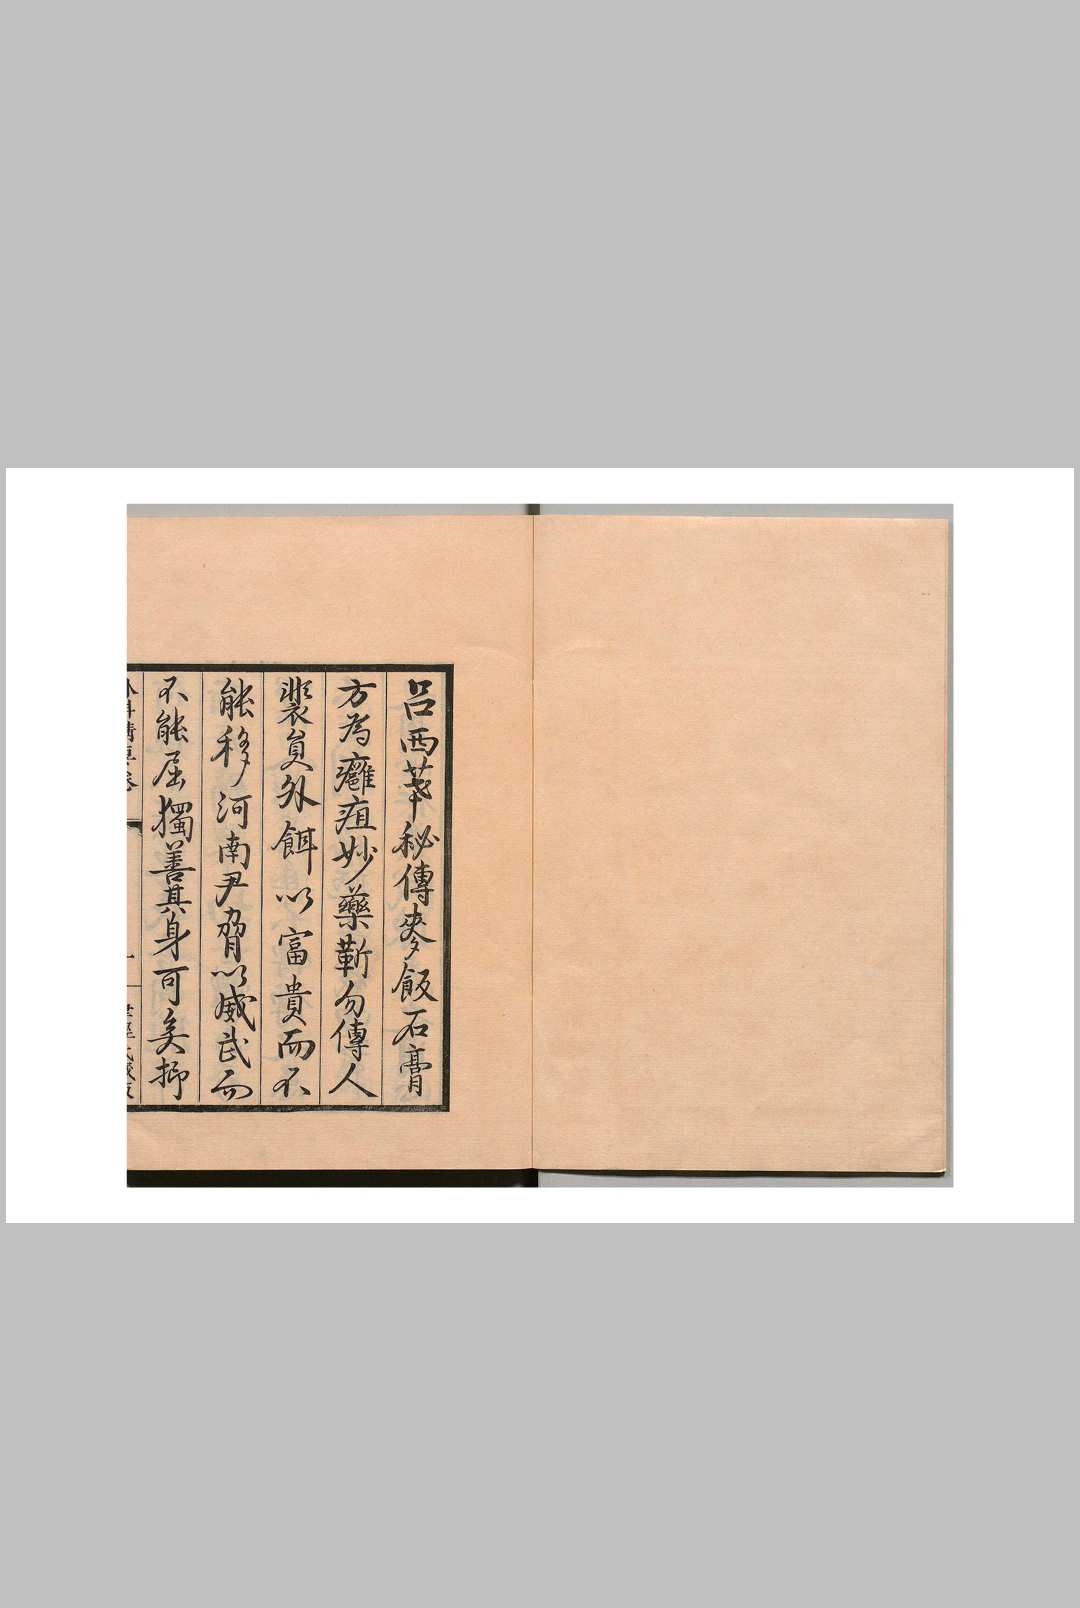 呂西華秘傳麥飯石膏
方為癰疽妙藥靳勿傳人
裴員外餌以富貴而不
能移河南尹脅以威武而
不能屈獨善其身可矣抑
外科精要卷